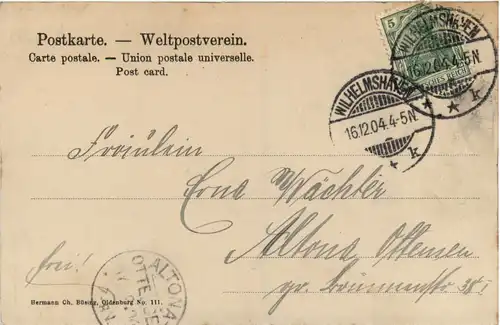 Postkarte. — Weltpostverein.
Carte postale. — Union postale universelle.
Post card.
5
DEUTSCHES REICH
WILHELMSHAVEN
16.12.04.4-5N.
* * k
WILHELMSHAVEN
16.12.04.4-5N.
* k
Fräulein
Erna Wächter
Altona Ottensen
gr. Brunnenstr. 38 I
frei!
ALTONA
OTTENSEN
Hermann Ch. Büsing, Oldenburg No. 111.